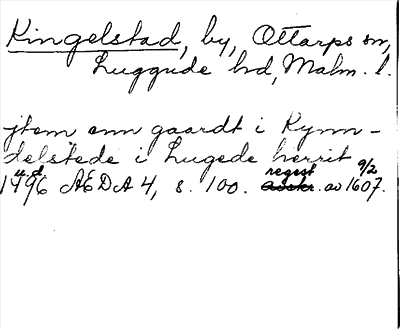 Kingelstad, by, Ottarps sn,
Luggude hd, Malm. l.
jtem enn gaardt i Kynn-
delstede i Lugede herrit
1496 AEDA 4, s. 100. regest av 9/2 1607.